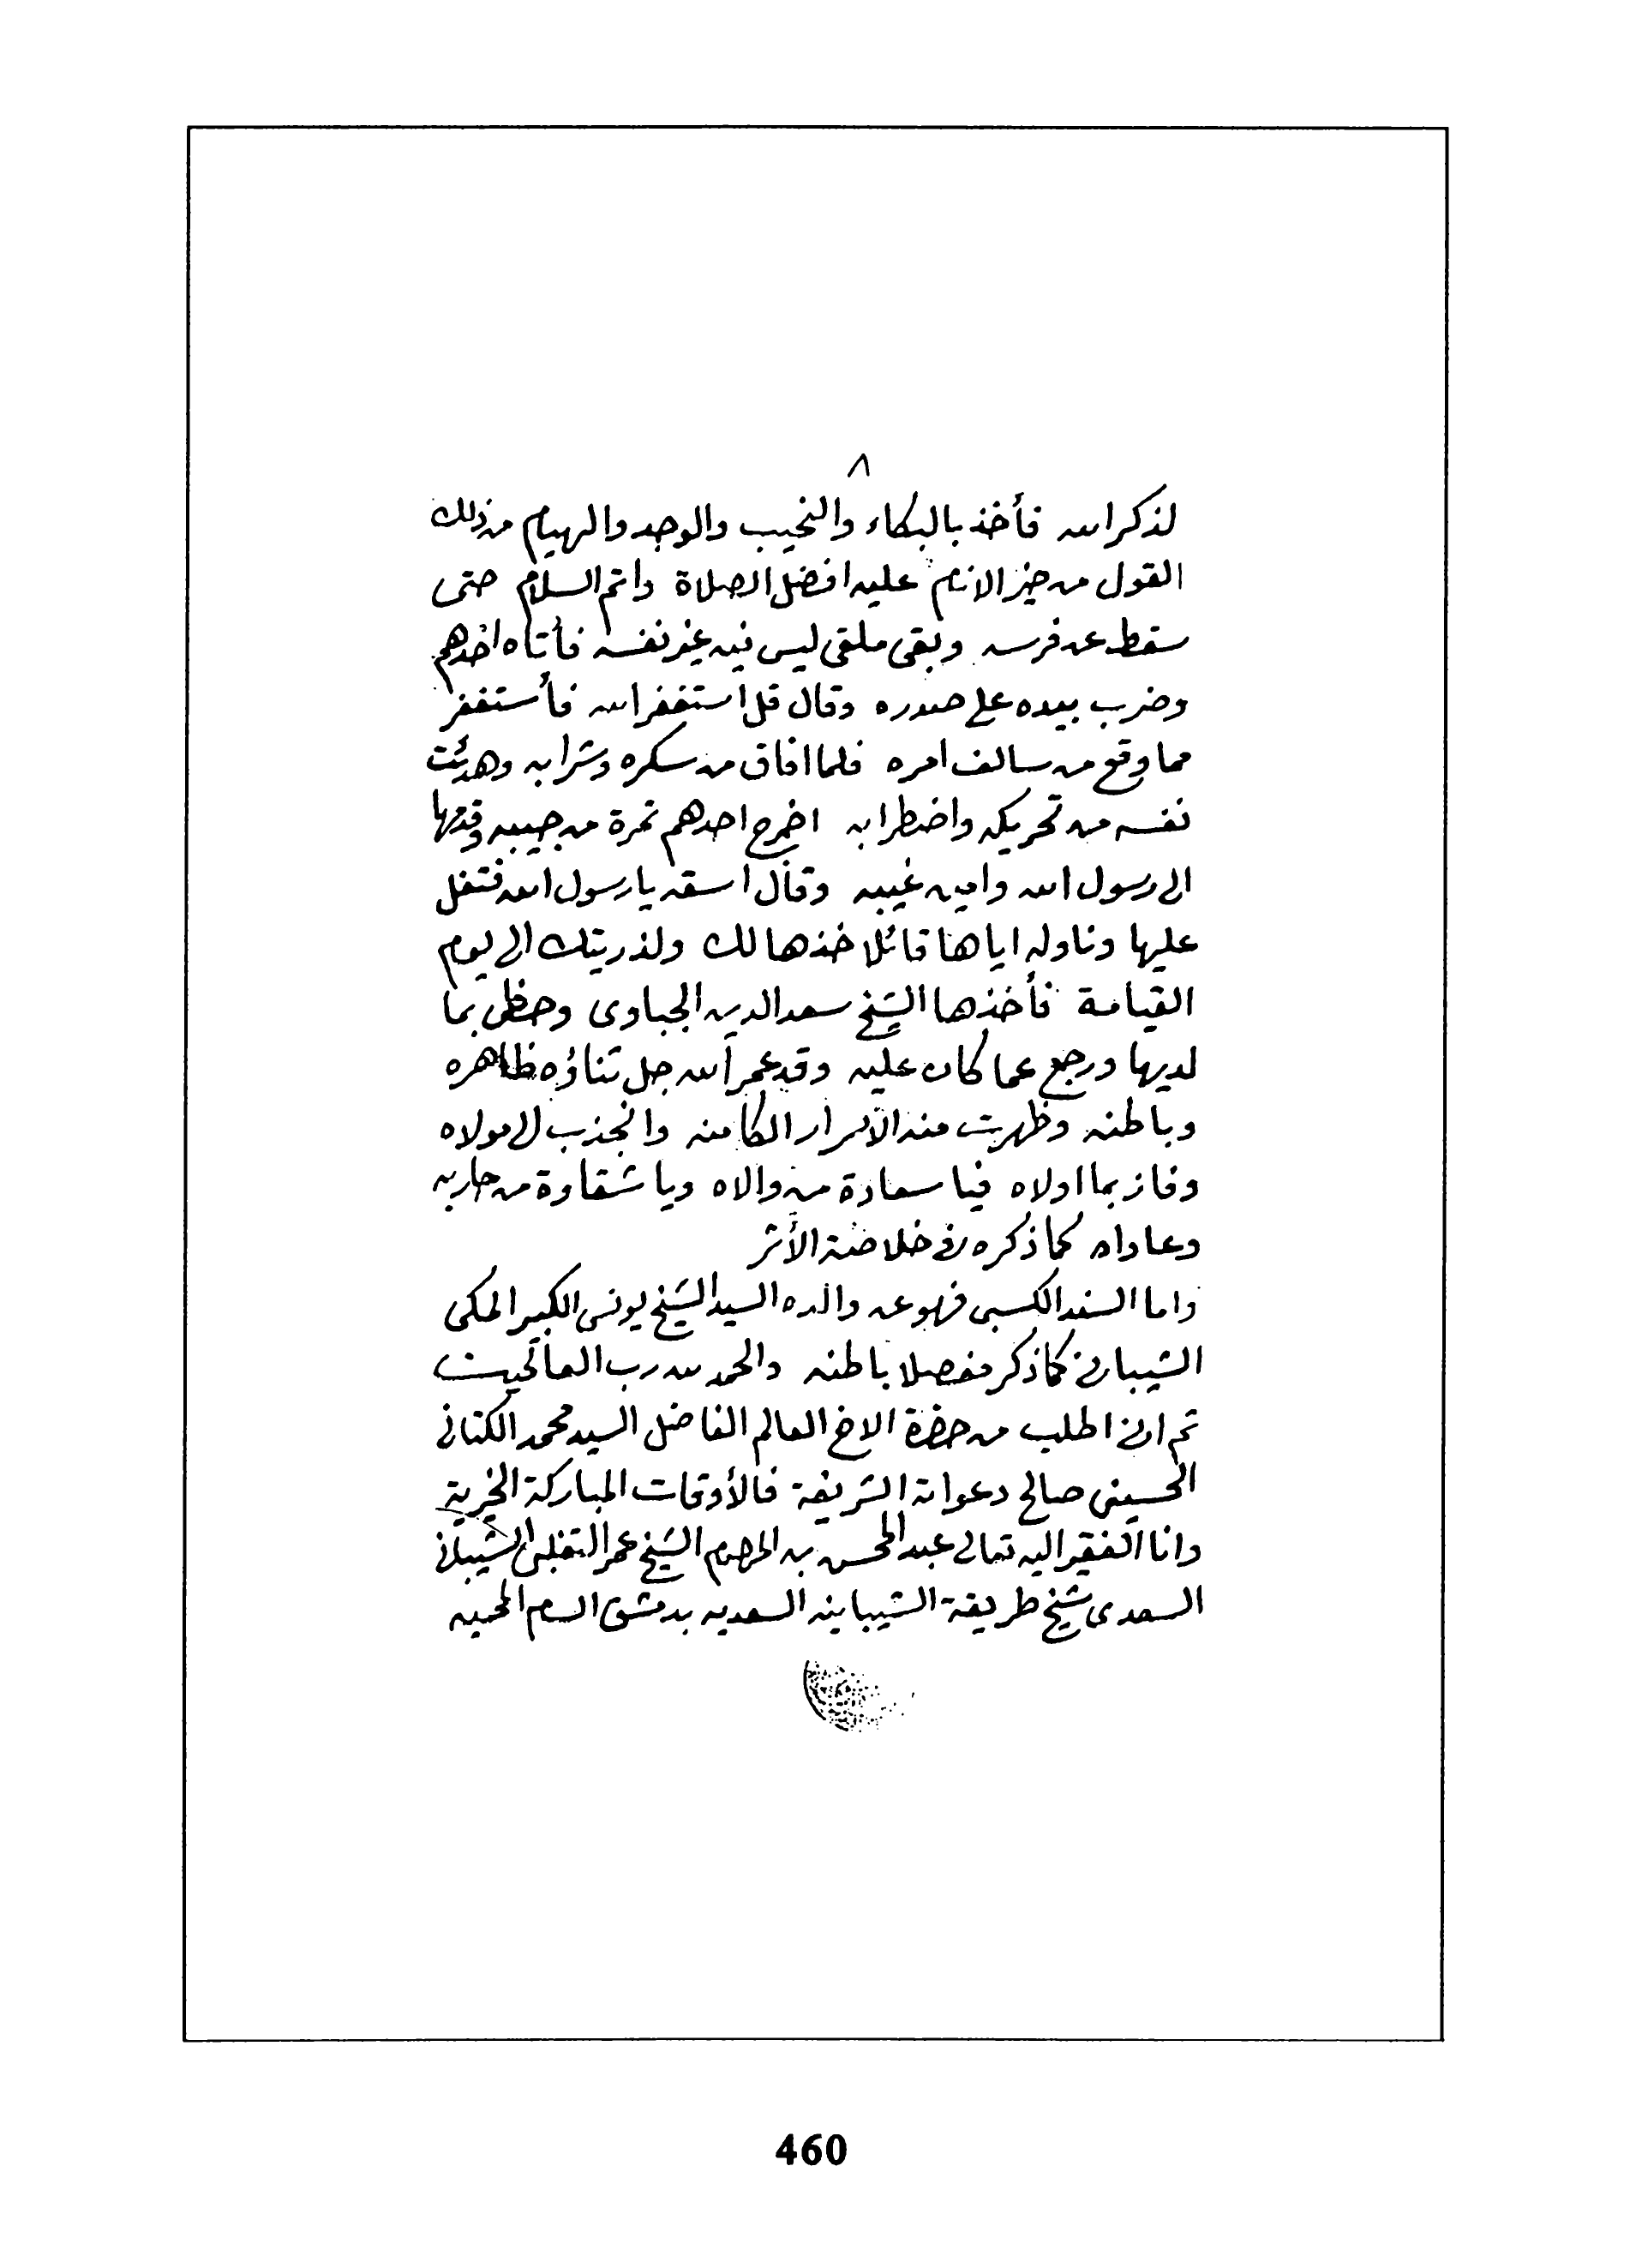 ٨
لذكر الله فأخذ بالبكاء والنحيب والوجد والهيام من ذلك
القول من خير الانام عليه افضل الصلاة واتم السلام حتى
سقط عن فرسه وبقى ملقى ليس فيه غير نفسه فأتاه احدهم
وضرب بيده على صدره وقال قل استغفر الله فأستغفر
مما وقع من سالف امره فلما افاق من سكره وشرابه وهدئت
نفسه من تحريكه واضطرابه اخرج احدهم تمرة من جيبه وقدمها
الى رسول الله وامين غيبه وقال اسقه يا رسول الله فتفل
عليها وناوله اياها قائلا خذها لك ولذريتك الى يوم
القيامة فأخذها الشيخ سعد الدين الجباوى وحظى بما
لديها ورجع عما كان عليه وقد عمر الله جل ثناؤه ظاهره
وباطنه وظهرت منه الأسرار الكامنه وانجذب الى مولاه
وفاز بما اولاه فيا سعادة من والاه ويا شقاوة من حاربه
وعاداه كما ذكره فى خلاصة الأثر
واما السند الكسبى فهو عن والده السيد الشيخ يونس الكبير المكى
الشيبانى كما ذكر مفصلا باطنه والحمد لله رب العالمين
ثم انى اطلب من حضرة الاخ العالم الفاضل السيد محمد الكتانى
الحسينى صالح دعواته الشريفة فالأوقات المباركة الخيرية
وانا الفقير اليه تعالى عبد المحسن بن المرحوم الشيخ عمر التغلبى الشيبانى
السعدى شيخ طريقة الشيبانيه السعديه بدمشق الشام المحميه
460